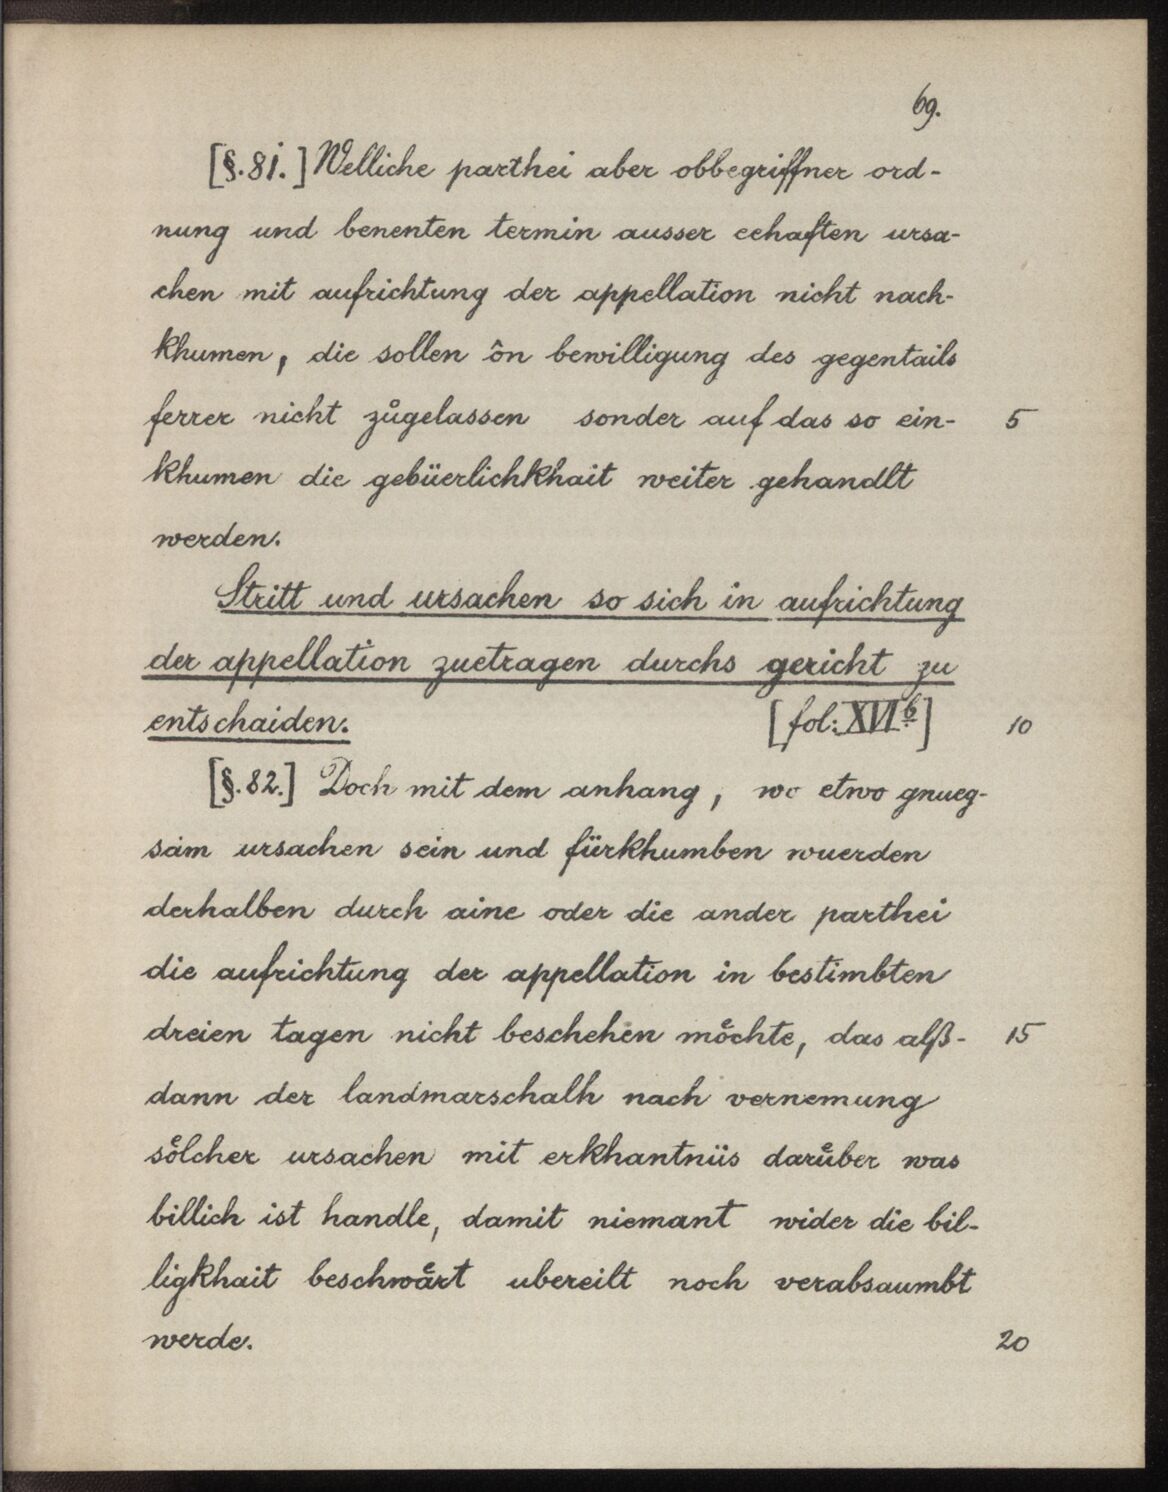 69.
[§.81.] Welliche parthei aber obbegriffner ord-
nung und benenten termin ausser eehaften ursa-
chen mit aufrichtung der appellation nicht nach-
khumen, die sollen ôn bewilligung des gegentails
ferrer nicht zůgelassen sonder auf das so ein- 5
khumen die gebüerlichkhait weiter gehandlt
werden.
Stritt und ursachen so sich in aufrichtung
der appellation zuetragen durchs gericht zu
entschaiden. [fol: XVI b] 10
[§.82.] Doch mit dem anhang, wo etwo gnueg-
sam ursachen sein und fürkhumben wuerden
derhalben durch aine oder die ander parthei
die aufrichtung der appellation in bestimbten
dreien tagen nicht beschehen moͤchte, das alß- 15
dann der landmarschalh nach vernemung
soͤlcher ursachen mit erkhantnüs daruͤber was
billich ist handle, damit niemant wider die bil-
ligkhait beschwaͤrt ubereilt noch verabsaumbt
werde. 20